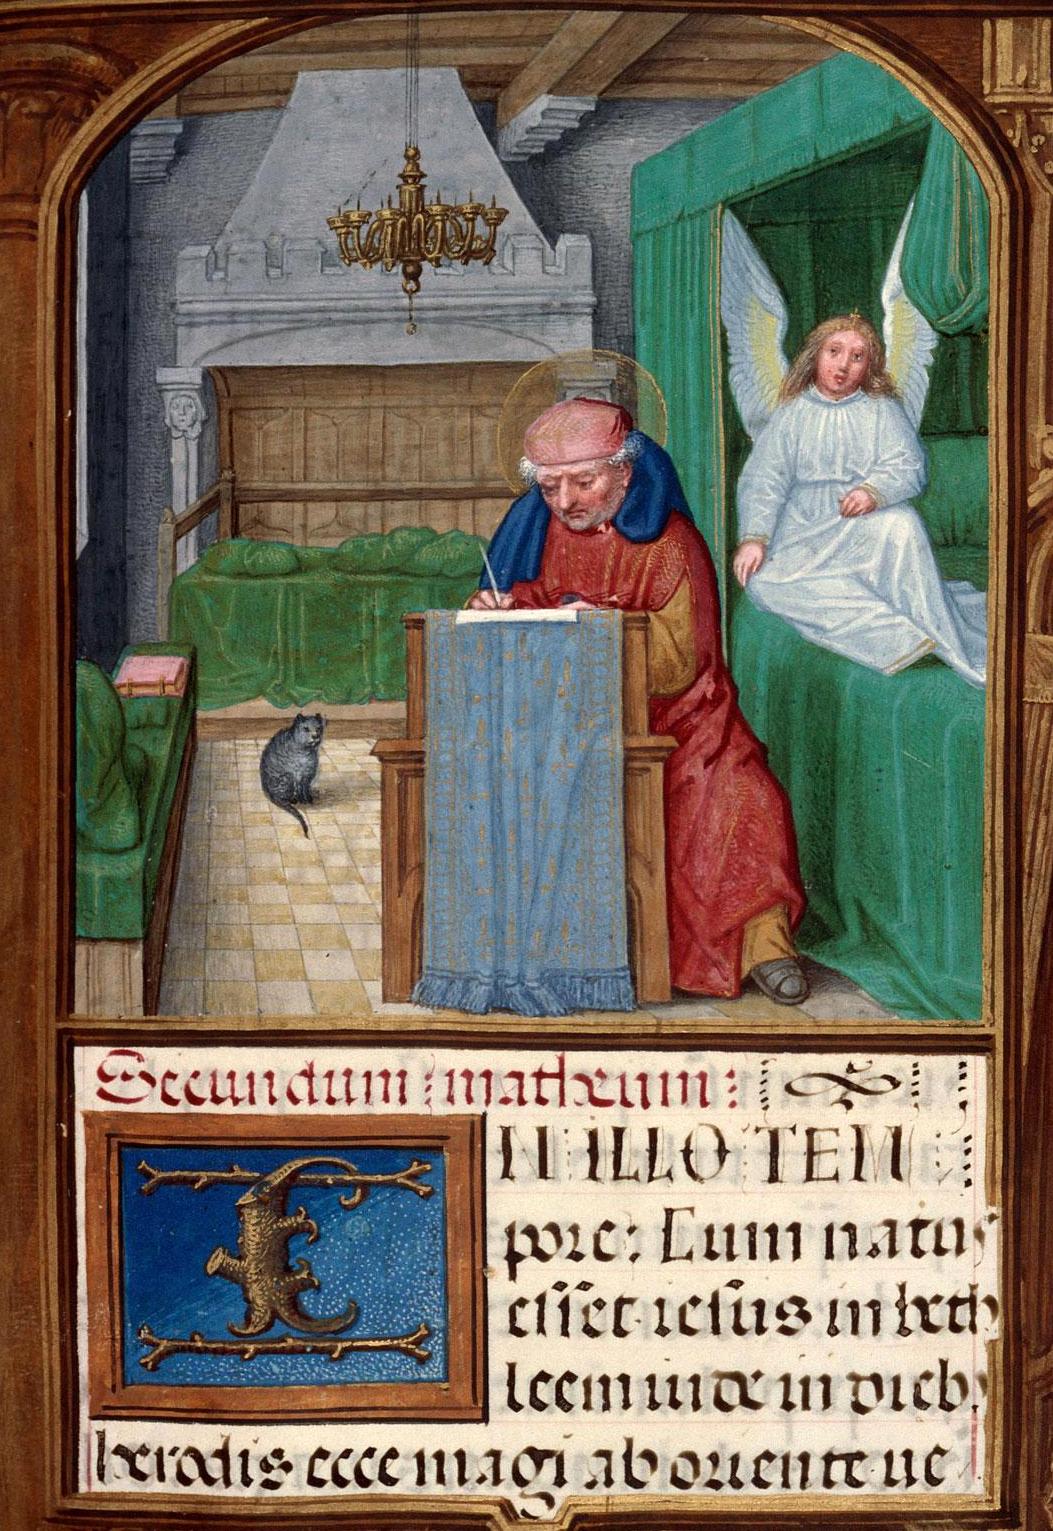 Secundum : matheum :
IN ILLO TEM
pore: Cum natus
esset iesus in beth
leem iude in dieb
herodis ecce magi ab oriente ue